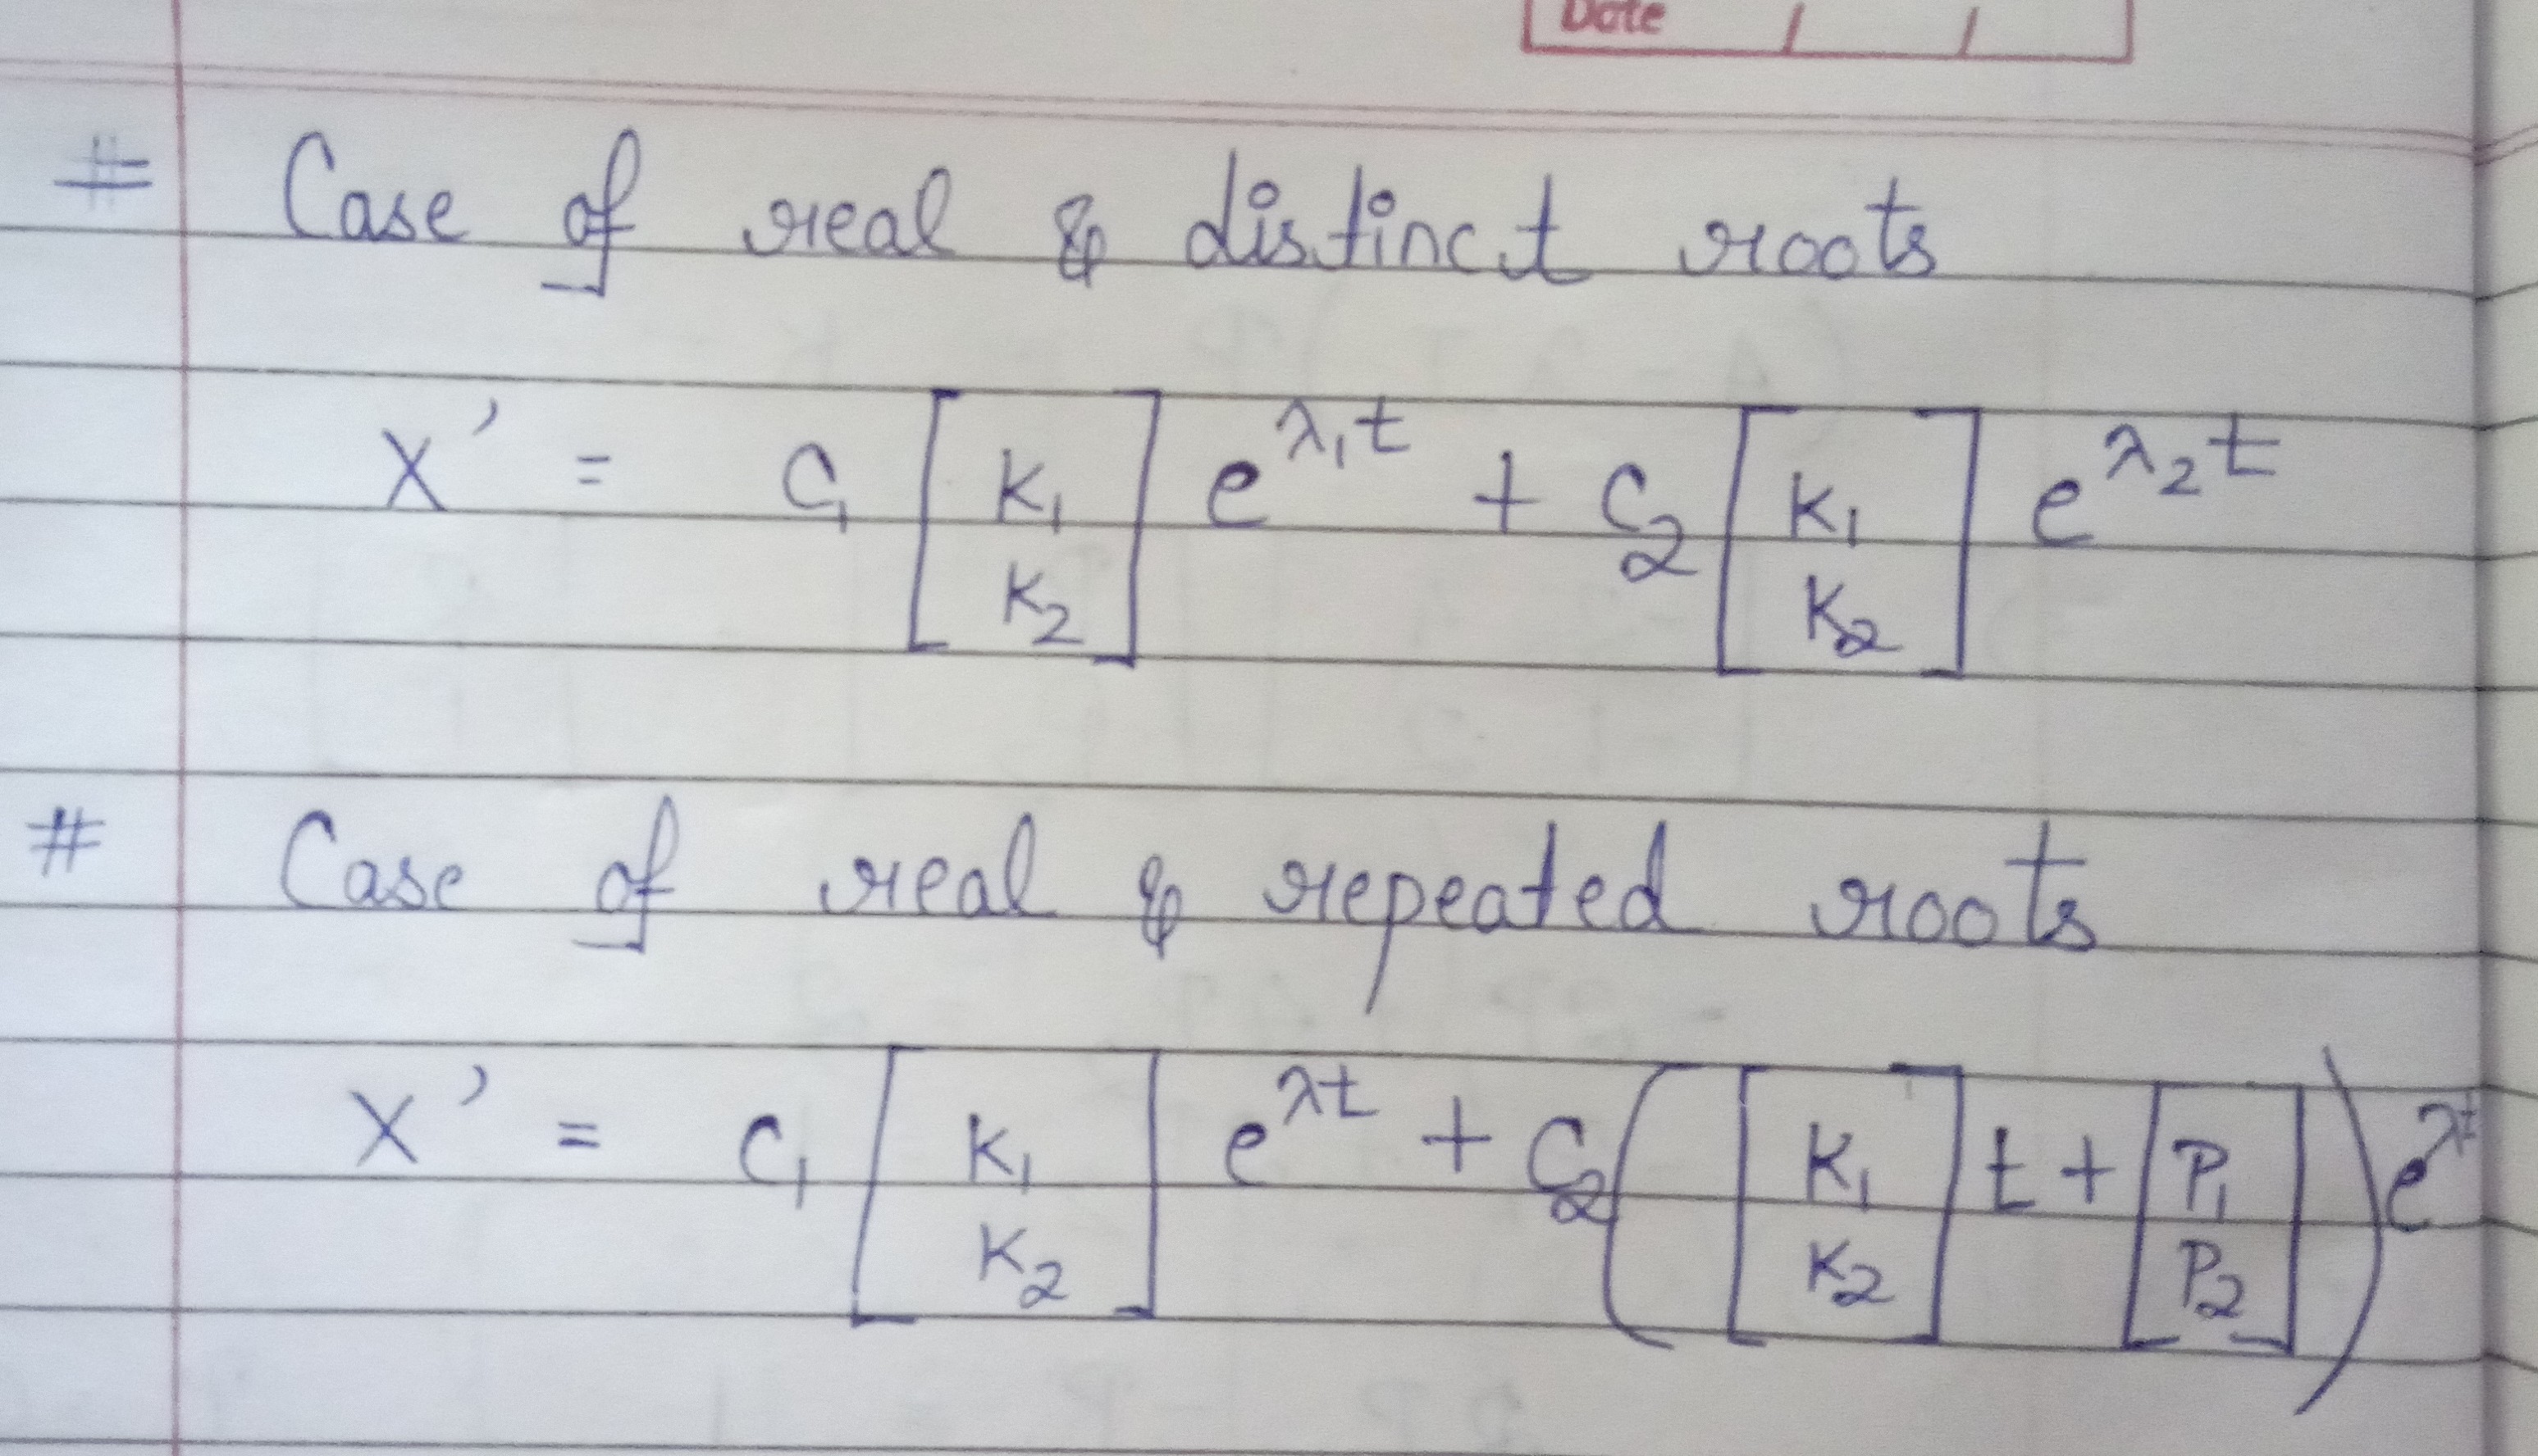 Date / /
# Case of real & distinct roots
X' = C₁ [K₁ K₂] e^λ₁t + C₂ [K₁ K₂] e^λ₂t
# Case of real & repeated roots
X' = C₁ [K₁ K₂] e^λt + C₂ ([K₁ K₂] t + [P₁ P₂]) e^λt